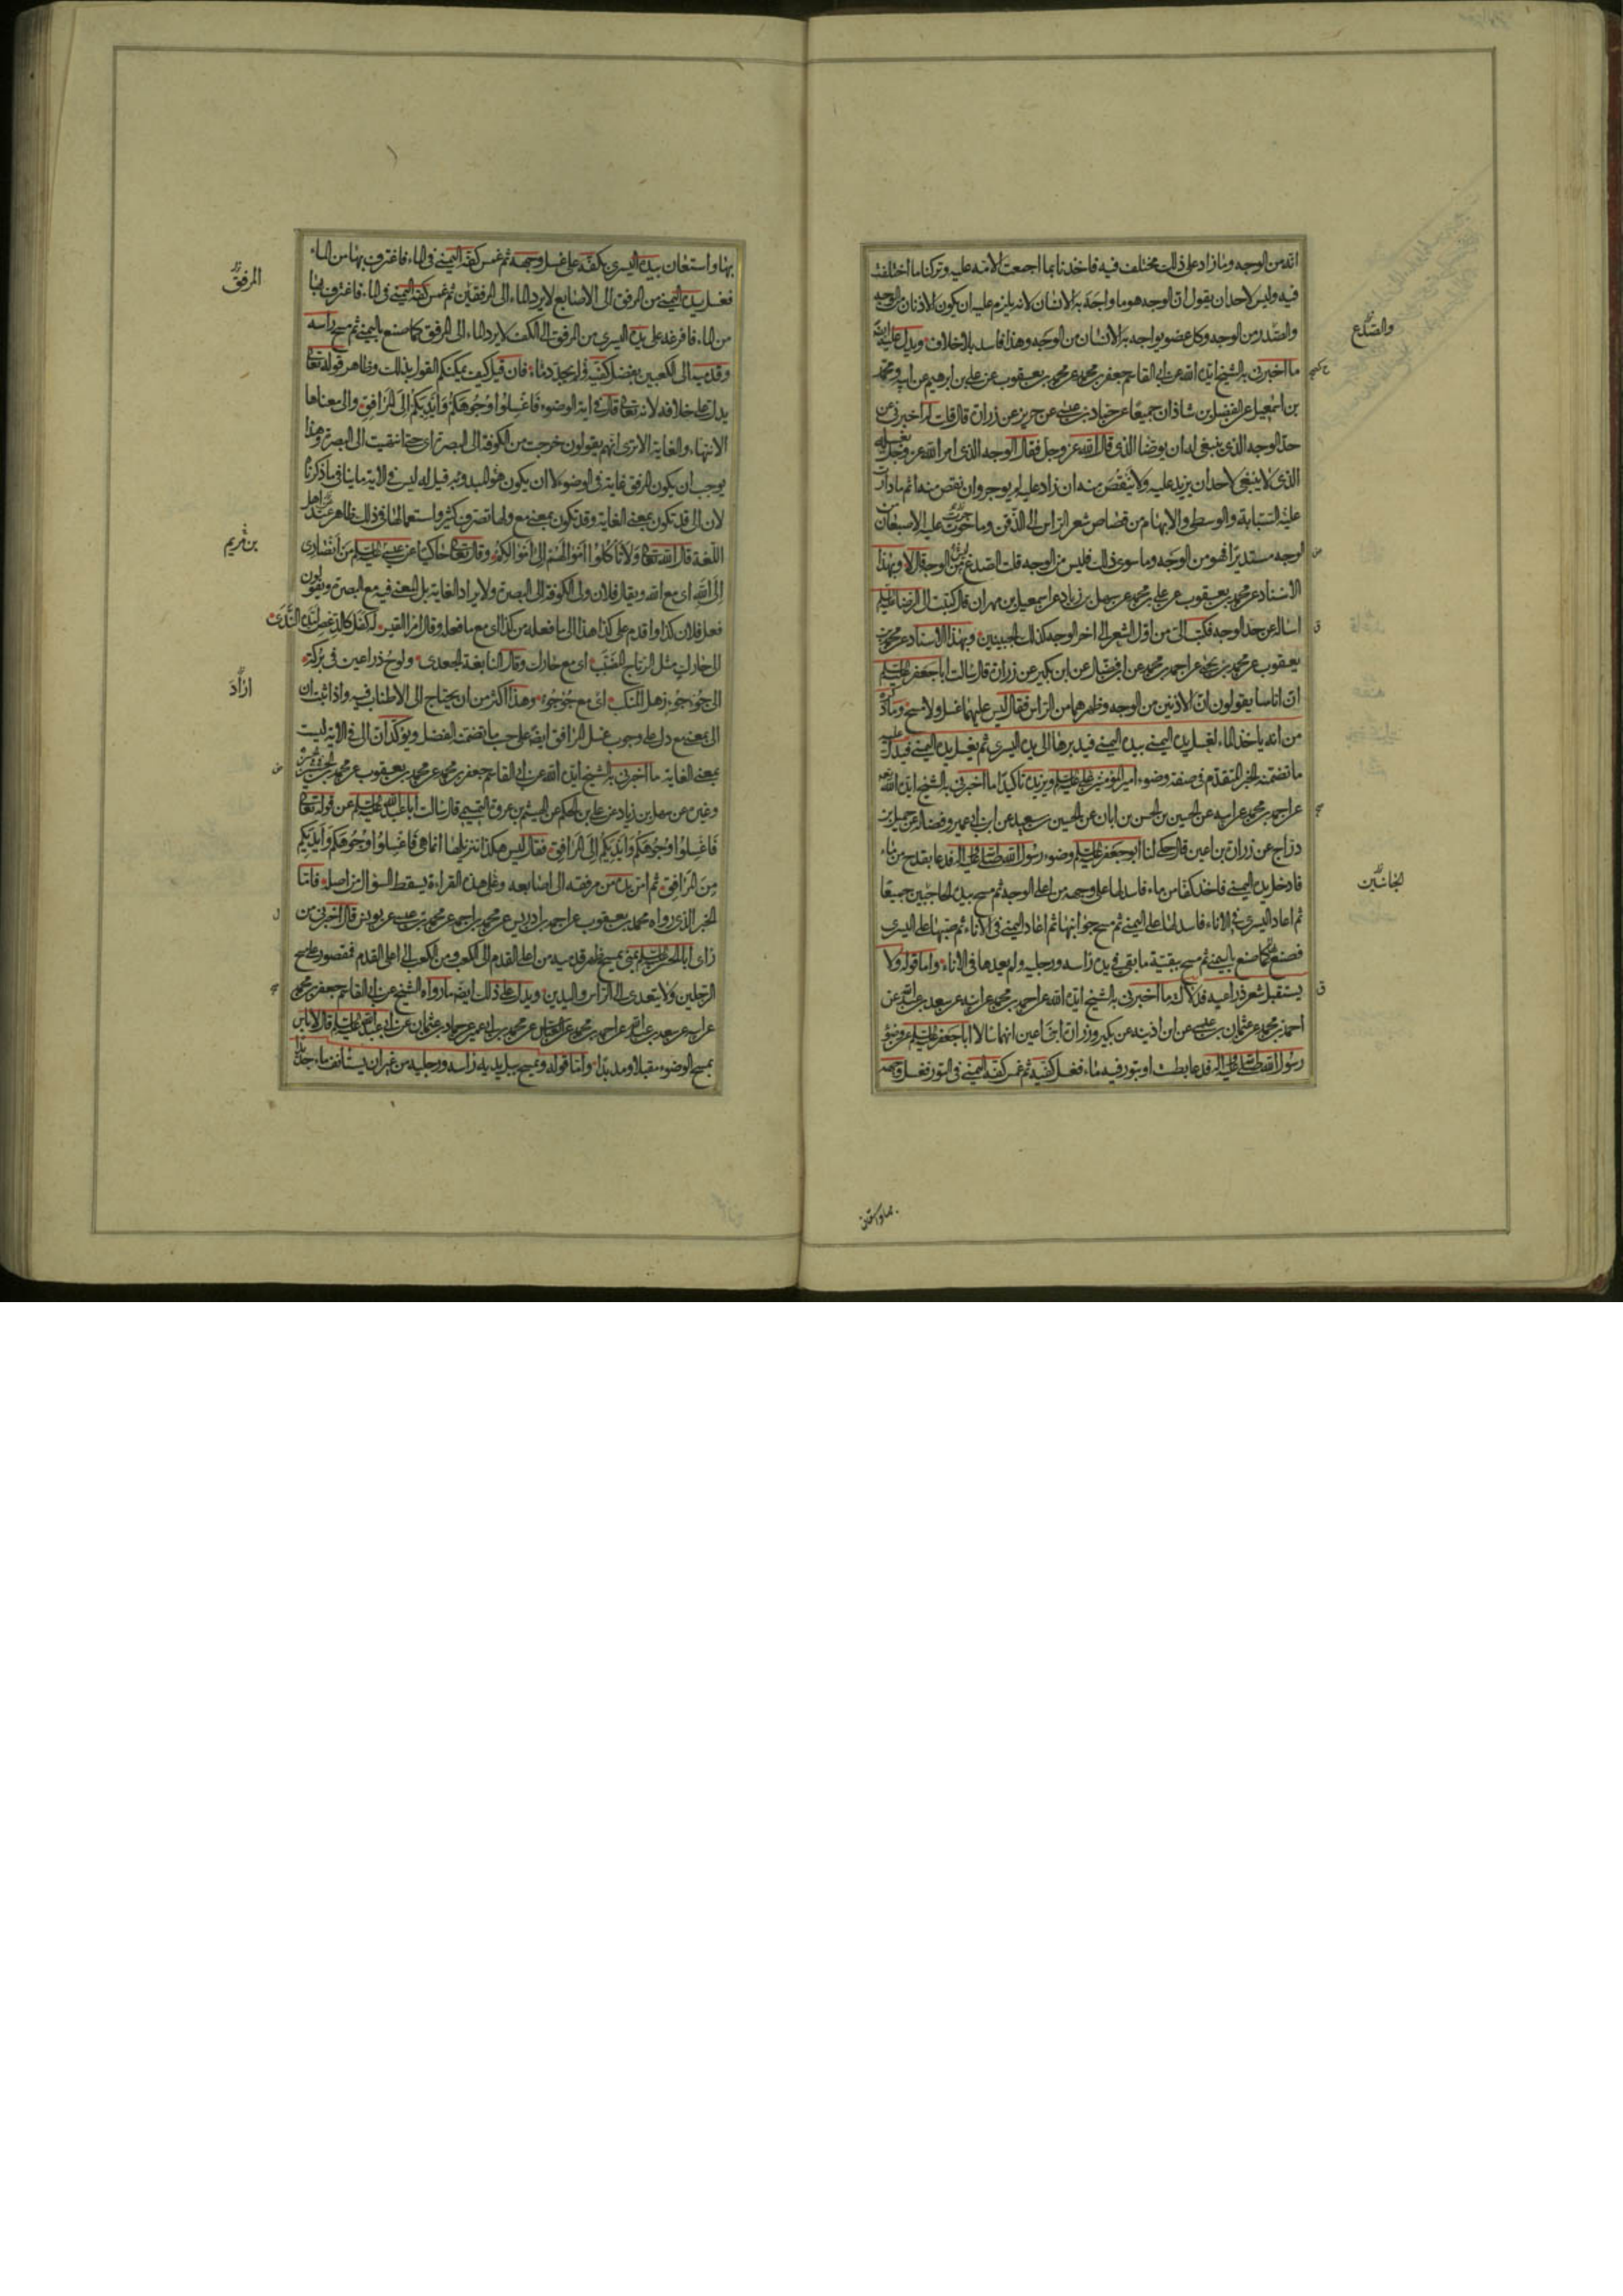 انه من الوجه وما زاد على ذلك مختلف فيه فاخذنا بما اجمعت الامة عليه وتركنا ما اختلفت
فيه وليس لاحد ان يقول ان الوجه هو ما واجه به الانسان لانه يلزم عليه ان يكون الاذنان من الوجه
والصدر من الوجه وكل عضو يواجه به الانسان من الوجه وهذا فاسد بلا خلاف ويدل عليه ايضا
ما اخبرنى به الشيخ ايده الله عن ابى القاسم جعفر بن محمد عن محمد بن يعقوب عن على بن ابرهيم عن ابيه ومحمد
بن اسمعيل عن الفضل بن شاذان جميعا عن حماد بن عيسى عن حريز عن زرارة قال قلت له اخبرنى عن
حد الوجه الذى ينبغى له ان يوضا الذى قال الله عز وجل فقال الوجه الذى امر الله عز وجل بغسله
الذى لا ينبغى لاحد ان يزيد عليه ولا ينقص منه ان زاد عليه لم يوجر وان نقص منه اثم ما دارت
عليه السبابة والوسطى والابهام من قصاص شعر الراس الى الذقن وما جرت عليه الاصبعان من
الوجه مستديرا فهو من الوجه وما سوى ذلك فليس من الوجه قلت الصدغ ليس من الوجه قال لا وبهذا
الاسناد عن محمد بن يعقوب عن على بن محمد عن سهل بن زياد عن اسمعيل بن مهران قال كتبت الى الرضا عليه السلم
اساله عن حد الوجه فكتب الى من اول الشعر الى اخر الوجه كذلك الجبينين وبهذا الاسناد عن محمد بن
يعقوب عن محمد بن يحيى عن احمد بن محمد عن ابن فضال عن ابن بكير عن زرارة قال سالت ابا جعفر عليه السلم
ان اناسا يقولون ان الاذنين من الوجه وظهرهما من الراس فقال ليس عليهما غسل ولا مسح وما ذكره
من انه ياخذ الماء لغسل يده اليمنى بيده اليمنى فيديرها الى يده اليسرى ثم يغسل يده اليمنى فيدل عليه
ما تضمنه الخبر المتقدم فى صفة وضوء امير المؤمنين على عليه السلم ويزيده تاكيدا ما اخبرنى به الشيخ ايده الله
عن احمد بن محمد عن ابيه عن الحسين بن الحسن بن ابان عن الحسين بن سعيد عن ابن ابى عمير وفضالة عن جميل بن
دراج عن زرارة بن اعين قال حكى لنا ابو جعفر عليه السلم وضوء رسول الله صلى الله عليه واله فدعا بقدح من ماء
فادخل يده اليمنى فاخذ كفا من ماء فاسدلها على وجهه من اعلى الوجه ثم مسح بيده الحاجبين جميعا
ثم اعاد اليسرى فى الاناء فاسدلها على اليمنى ثم مسح جوانبها ثم اعاد اليمنى فى الاناء ثم صبها على اليسرى
فصنع بها كما صنع باليمنى ثم مسح ببقية ما بقى فى يده راسه ورجليه ولم يعدها فى الاناء واما قوله ولا
يستقبل شعر ذراعيه فدلالته ما اخبرنى به الشيخ ايده الله عن احمد بن محمد عن ابيه عن سعد بن عبد الله عن
احمد بن محمد عن عثمان بن عيسى عن ابن اذينه عن بكير وزرارة ابنى اعين انهما سالا ابا جعفر عليه السلم عن وضوء
رسول الله صلى الله عليه واله فدعا بطست او بتور فيه ماء فغسل كفيه ثم غمس كفه اليمنى فى التور فغسل وجهه
والصدغ
الجانبين
بها واستعان
بها واستعان بيده اليسرى بكفه على غسل وجهه ثم غمس كفه اليمنى فى الماء فاغترف بها من الماء
فغسل يده اليمنى من المرفق الى الاصابع لا يرد الماء الى المرفقين ثم غمس كفه اليمنى فى الماء فاغترف بها
من الماء فافرغه على يده اليسرى من المرفق الى الكف لا يرد الماء الى المرفق كما صنع باليمنى ثم مسح راسه
وقدميه الى الكعبين بفضل كفيه ولم يجدد ماء فان قيل كيف يمكنكم القول بذلك وظاهر قوله تعالى
يدل على خلافه لانه تعالى قال فى اية الوضوء فَاغْسِلُوا وُجُوهَكُمْ وَاَيْدِيَكُمْ اِلَى الْمَرَافِقِ والى معناها
الانتهاء والغاية الا ترى انهم يقولون خرجت من الكوفة الى البصرة اى حتى انتهيت الى البصرة وهذا
يوجب ان يكون المرفق غاية فى الوضوء لا ان يكون هو المبدو به قيل له ليس فى الاية ما ينافى ما ذكرناه
لان الى قد تكون بمعنى الغاية وقد تكون بمعنى مع ولها تصرف كثير واستعمالها فى ذلك ظاهر عند اهل
اللغة قال الله تعالى وَلَا تَاْكُلُوا اَمْوَالَهُمْ اِلَى اَمْوَالِكُمْ وقال تعالى حاكيا عن عيسى عليه السلم مَنْ اَنْصَارِى
اِلَى اللهِ اى مع الله ويقال فلان ولى الكوفة الى البصرة ولا يراد الغاية بل المعنى فيه مع البصرة ويقولون
فعل فلان كذا واقدم على كذا هذا الى ما فعله من كذا اى مع ما فعله وقال امرا القيس له كفل كالدعص لبده الندى
الى حارك مثل الرتاج المضبب اى مع حارك وقال النابغة الجعدى ولوح ذراعين فى بركة
الى جؤجؤ رهل المنكب اى مع جؤجؤ وهذا اكثر من ان يحتاج الى الاطناب فيه واذا ثبت ان
الى بمعنى مع دل على وجوب غسل المرافق ايضا على حسب ما تضمنه الفصل ويؤكد ان الى فى الاية ليست
بمعنى الغاية ما اخبرنى به الشيخ ايده الله عن ابى القاسم جعفر بن محمد عن محمد بن يعقوب عن محمد بن الحسن
وغيره عن سهل بن زياد عن على بن الحكم عن الهيثم بن عروة التميمى قال سالت ابا عبد الله عليه السلم عن قوله تعالى
فَاغْسِلُوا وُجُوهَكُمْ وَاَيْدِيَكُمْ اِلَى الْمَرَافِقِ فقال ليس هكذا تنزيلها انما هى فَاغْسِلُوا وُجُوهَكُمْ وَاَيْدِيَكُمْ
مِنَ الْمَرَافِقِ ثم امر يده من مرفقه الى اصابعه وعلى هذه القراءة يسقط السؤال من اصله فاما
الخبر الذى رواه محمد بن يعقوب عن احمد بن ادريس عن محمد بن احمد عن محمد بن عيسى عن يونس قال اخبرنى من
راى ابا الحسن عليه السلم بمنى يمسح ظهر قدميه من اعلى القدم الى الكعب ومن الكعب الى اعلى القدم فمقصور على مسح
الرجلين ولا يتعدى الى الراس واليدين ويدل على ذلك ايضا ما رواه الشيخ عن ابى القاسم جعفر بن محمد
عن ابيه عن سعد بن عبد الله عن احمد بن محمد عن العباس عن محمد بن ابى عمير عن حماد بن عثمان عن ابى عبد الله عليه السلم قال لا باس
بمسح الوضوء مقبلا ومدبرا واما قوله ويمسح ببلل يديه راسه ورجليه من غير ان يستانف ماء جديدا
المرفق
بن مريم
اراد